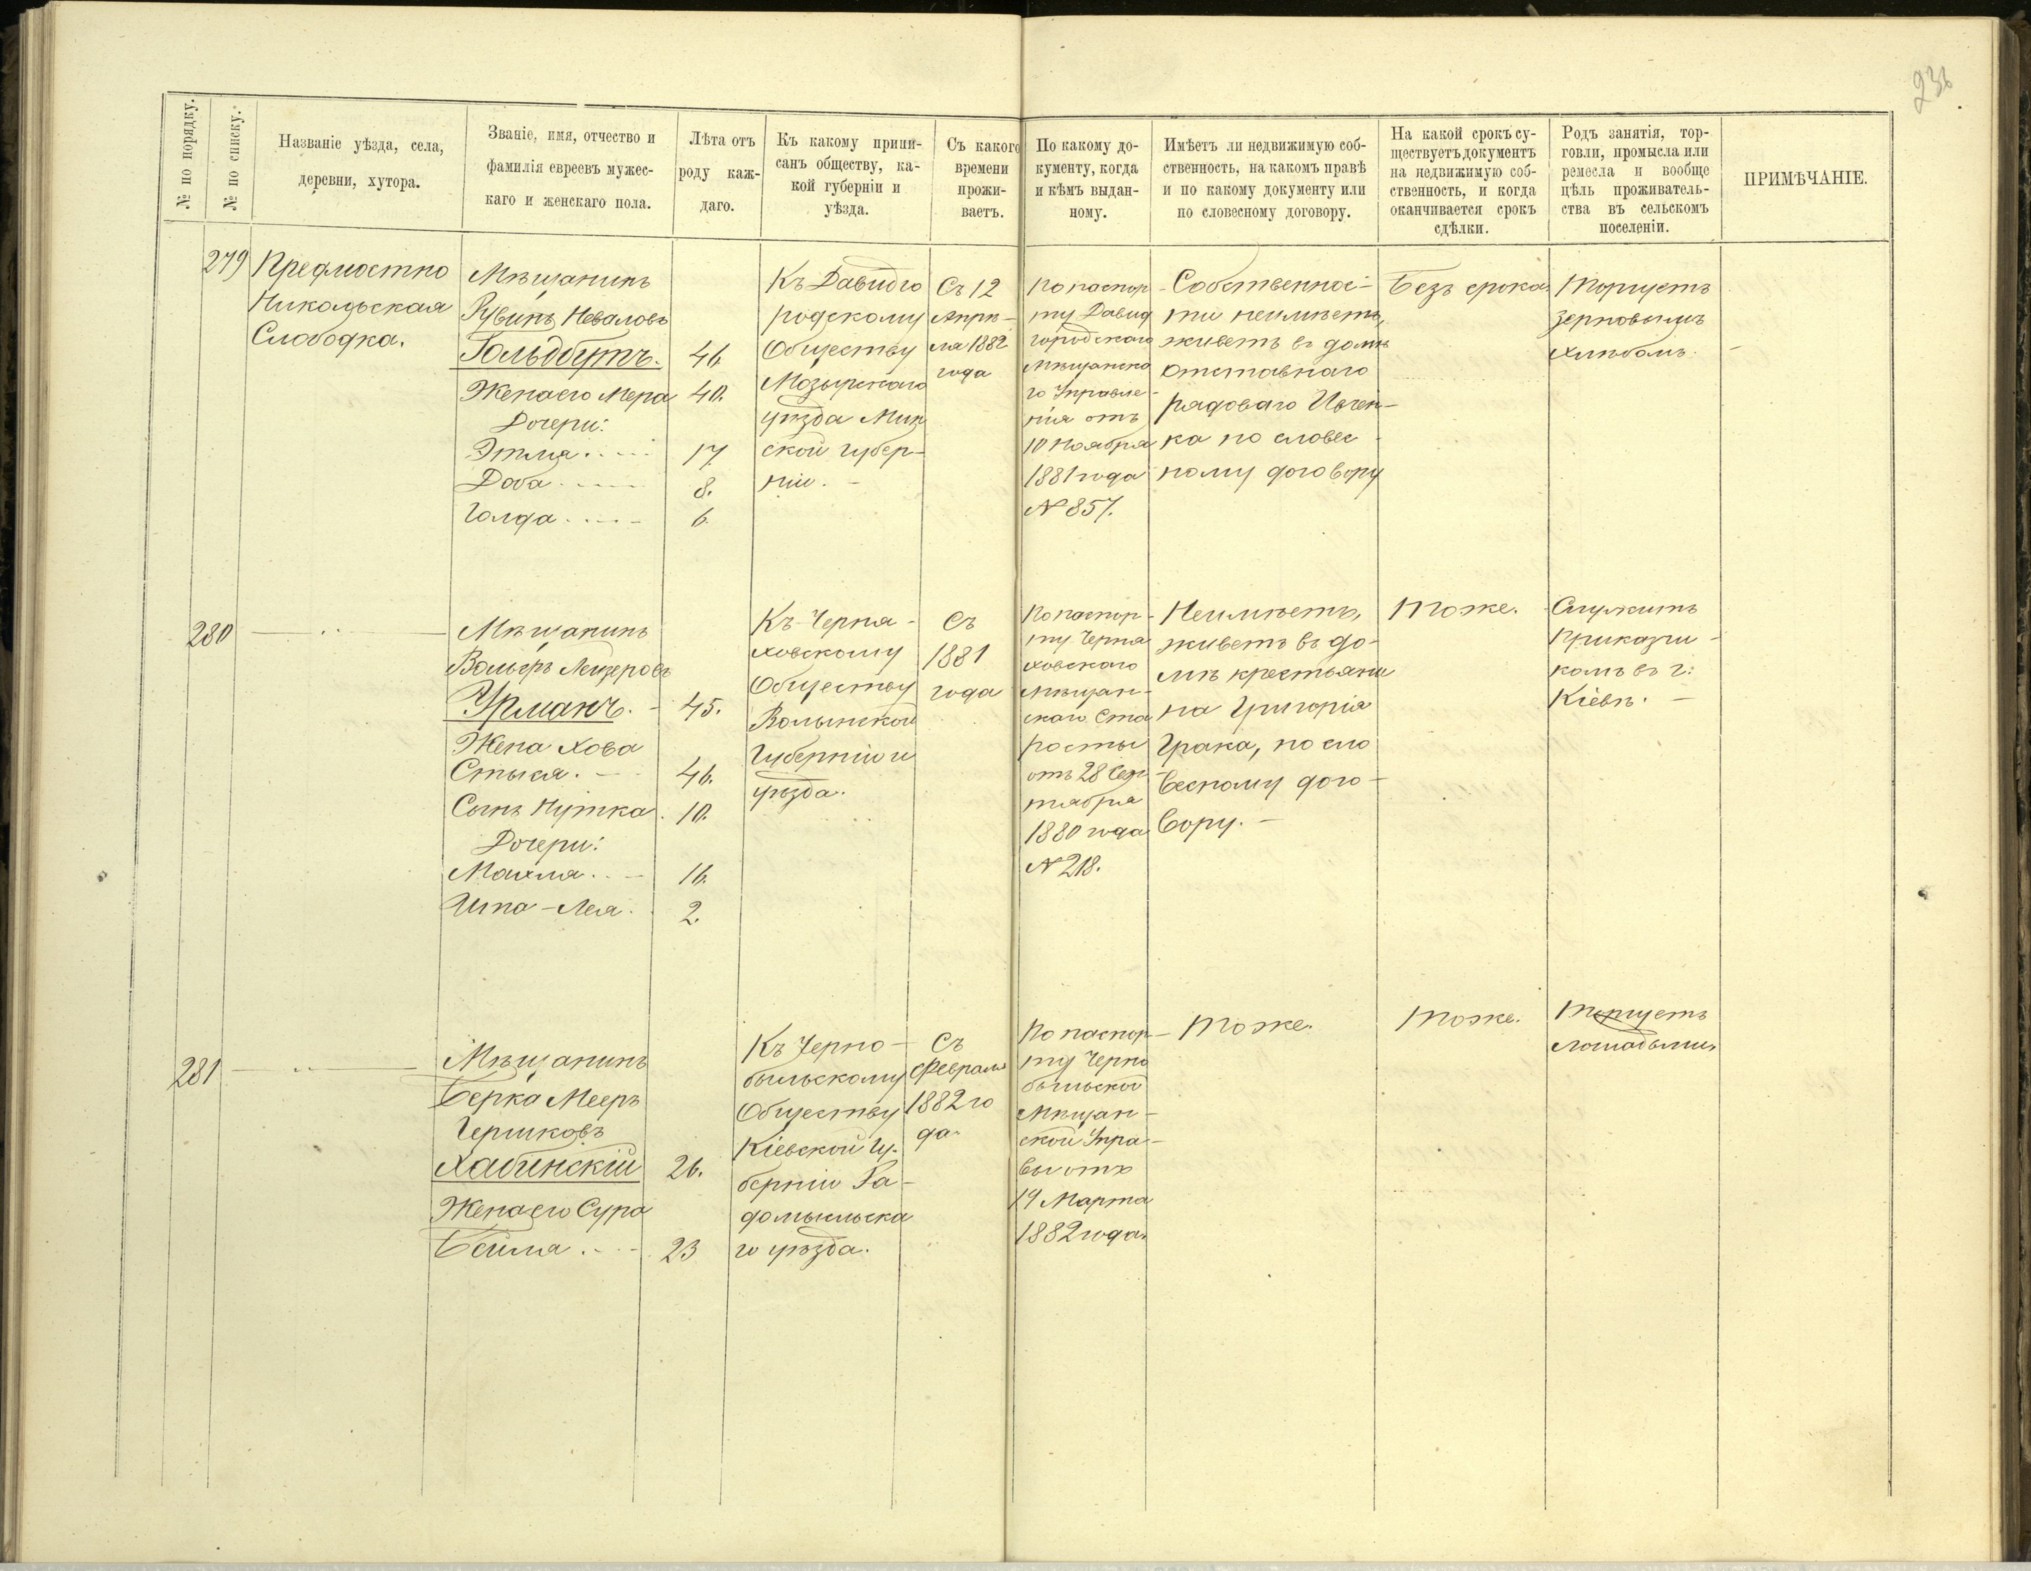 236
№ по порядку.
№ по списку.
Названіе уѣзда, села,
деревни, хутора.
Званіе, имя, отчество и
фамилія евреевъ мужес-
каго и женскаго пола.
Лѣта отъ
роду каж-
даго.
Къ какому припи-
санъ обществу, ка-
кой губерніи и
уѣзда.
Съ какого
времени
прожи-
ваетъ.
По какому до-
кументу, когда
и кѣмъ выдан-
ному.
Имѣетъ ли недвижимую соб-
ственность, на какомъ правѣ
и по какому документу или
по словесному договору.
На какой срокъ су-
ществуетъ документъ
на недвижимую соб-
ственность, и когда
оканчивается срокъ
сдѣлки.
Родъ занятія, тор-
говли, промысла или
ремесла и вообще
цѣль проживатель-
ства въ сельскомъ
поселеніи.
ПРИМѢЧАНІЕ.
279
Предмостно
Никольская
Слободка.
Мѣщанинъ
Рувинъ Неваловъ
Гольдбутъ.
Жена его Мера
Дочери:
Этля
Доба
Голда
46
40.
17
8.
6
Къ Давидго
родскому
Обществу
Мозырскаго
уѣзда Мин
ской губер-
ніи.
Съ 12
Апрѣ-
ля 1882
года
По паспор
ту Давид
городскаго
Мѣщанска
го Управле-
нія отъ
10 Ноября
1881 года
№ 857.
Собственнос-
ти неимѣетъ,
живетъ въ домѣ
отставнаго
рядоваго Ивчен-
ка по словес
ному договору
Безъ срока
Торгуетъ
зерновымъ
хлѣбомъ.
280
Мѣщанинъ
Вольфъ Лейзеровъ
Урманъ.
Жена Хова
Стыся.
Сынъ Нутка
Дочери:
Махля
Ита-Лея
45.
46.
10.
16.
2.
Къ Черня-
ховскому
Обществу
Волынской
Губерніи и
уѣзда.
Съ
1881
года
По паспор-
ту Черня
ховскаго
Мѣщан-
скаго Ста
росты
отъ 28 Сен
тября
1880 года
№ 218.
Неимѣетъ,
живетъ въ до-
мѣ крестьяни
на Григорія
Грака, по сло
весному дого-
вору.
Тоже.
Служитъ
Приказчи-
комъ въ г:
Кіевѣ.
281
Мѣщанинъ
Берка Мееръ
Гершковъ
Хабинскій
Жена его Сура
Бейла
26.
23
Къ Черно-
быльскому
Обществу
Кіевской Гу-
берніи Ра-
домысльска
го уѣзда.
Съ
Февраля
1882 го
да.
По паспор-
ту Черно
быльской
Мѣщан-
ской Упра-
вы отъ
19 Марта
1882 года.
Тоже.
Тоже.
Торгуетъ
лошадьми.